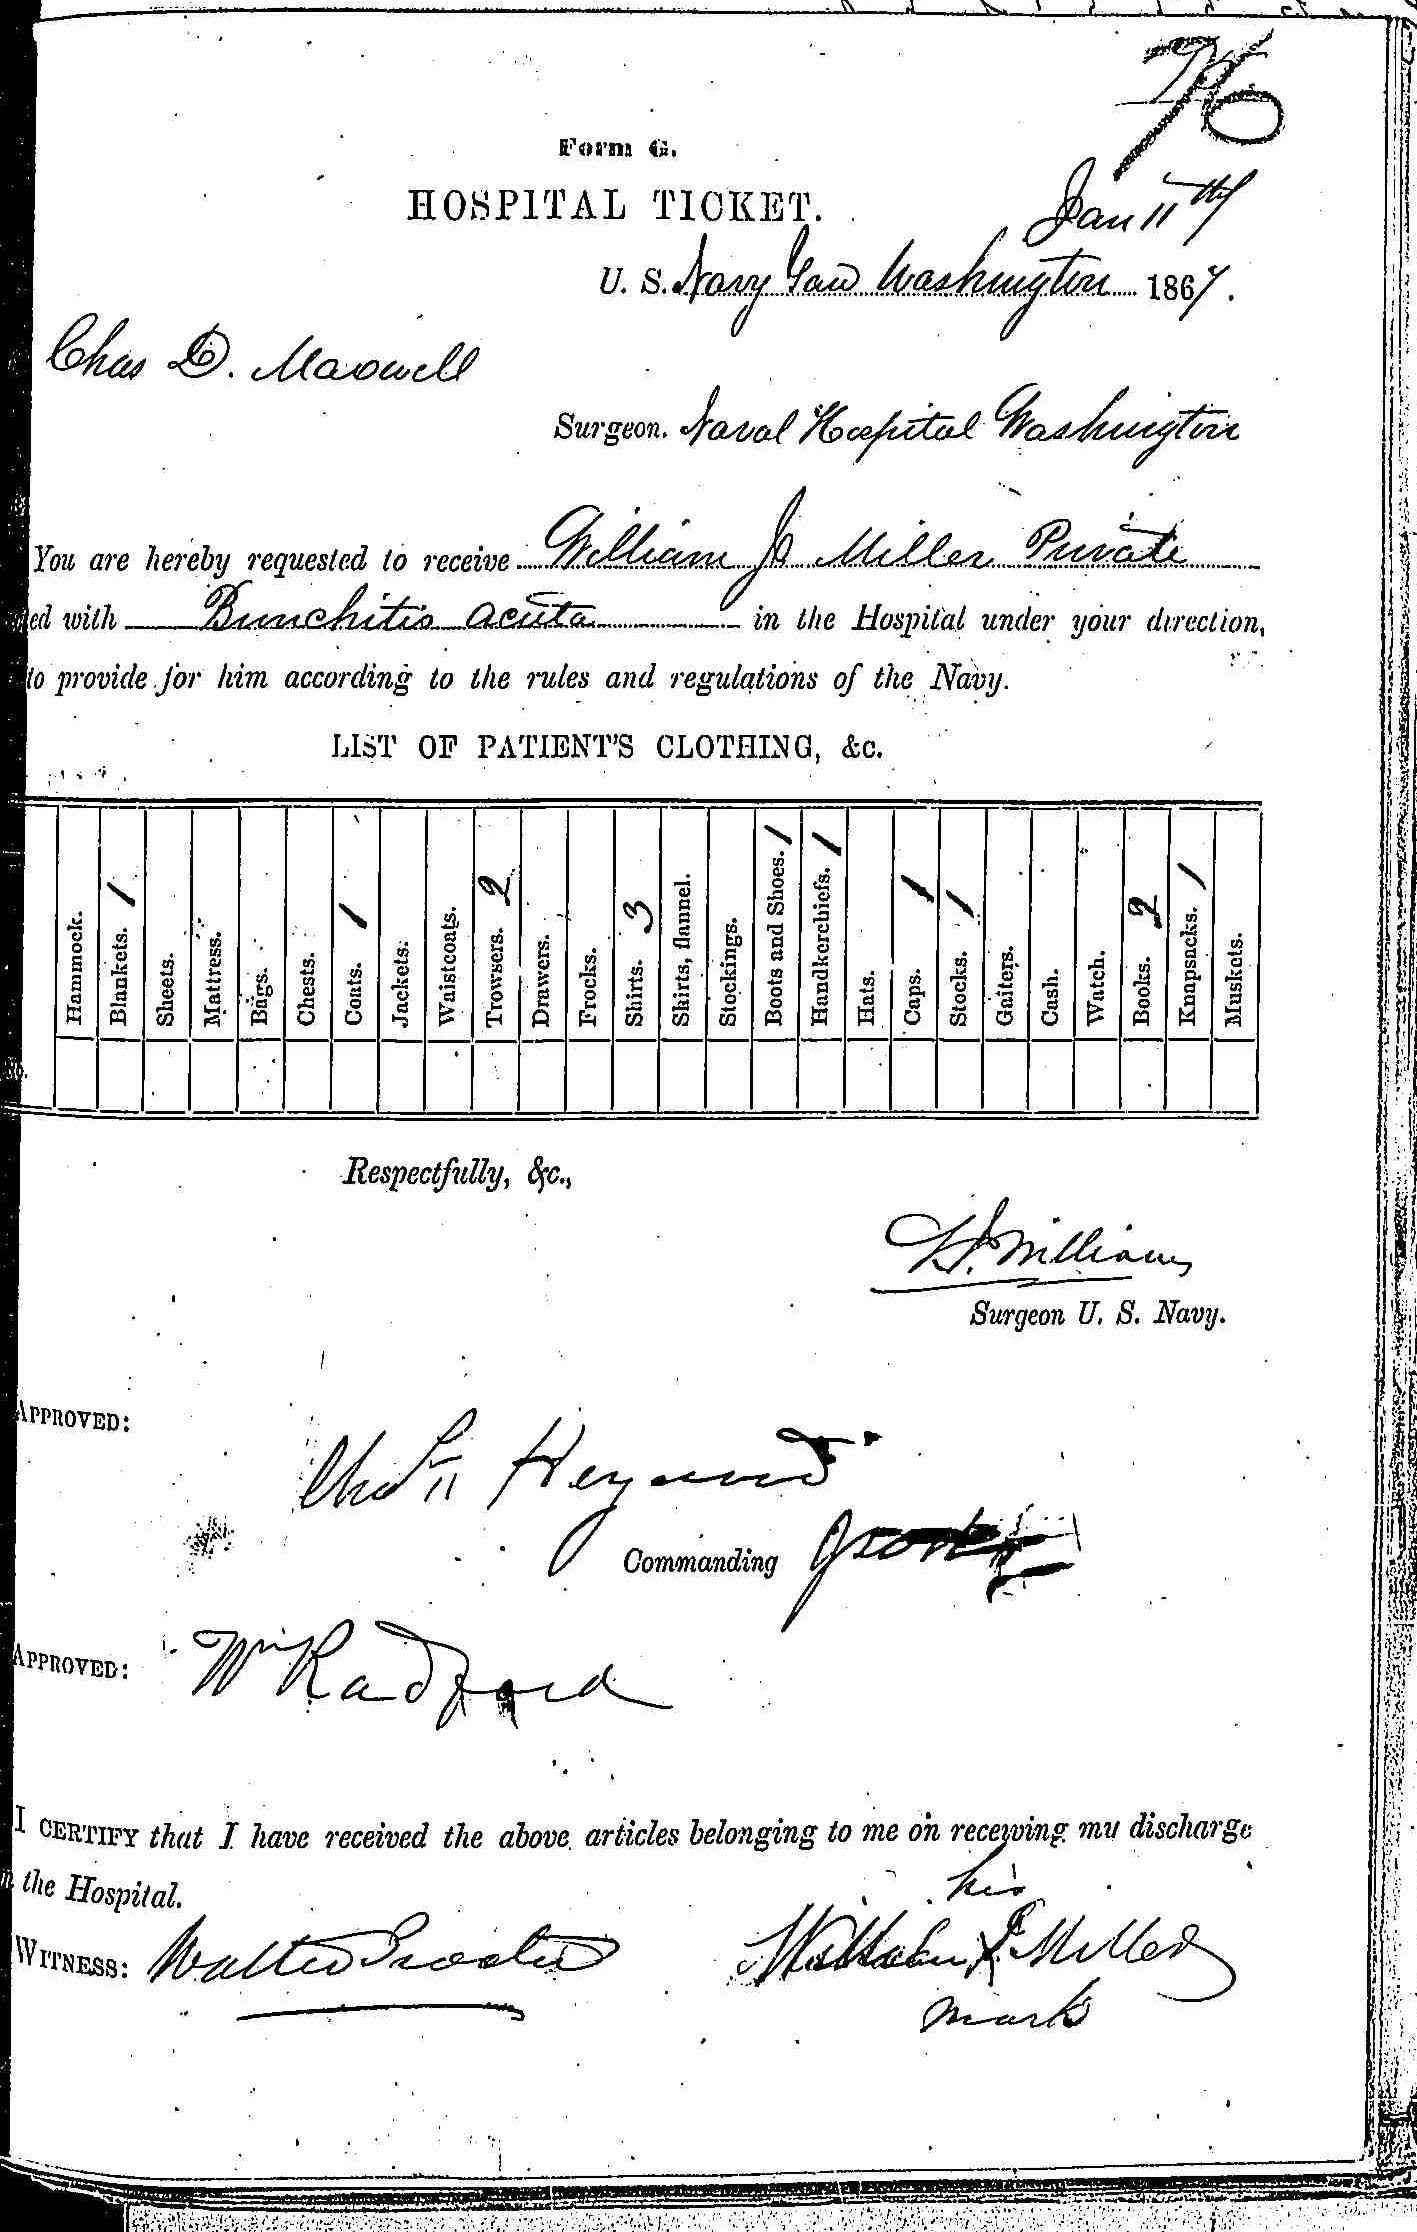 76
Form G.
HOSPITAL TICKET.
Jan 11th
U. S. Navy Yard Washington 1867.
Chas D. Maxwell
Surgeon. Naval Hospital Washington
You are hereby requested to receive William J. Miller Private
ed with Bronchitis acuta in the Hospital under your direction,
to provide for him according to the rules and regulations of the Navy.
LIST OF PATIENT'S CLOTHING, &c.
Hammock.
Blankets. 1
Sheets.
Mattress.
Bags.
Chests.
Coats. 1
Jackets.
Waistcoats.
Trowsers. 2
Drawers.
Frocks.
Shirts. 3
Shirts, flannel.
Stockings.
Boots and Shoes. 1
Handkerchiefs. 1
Hats.
Caps. 1
Stocks. 1
Gaiters.
Cash.
Watch.
Books. 2
Knapsacks. 1
Muskets.
No.
Respectfully, &c.,
Williams
Surgeon U. S. Navy.
APPROVED:
Chas Heywood
Commanding
APPROVED: Wm Radford
I CERTIFY that I have received the above articles belonging to me on receiving my discharge
the Hospital.
his
WITNESS: Walter William J. Miller
mark